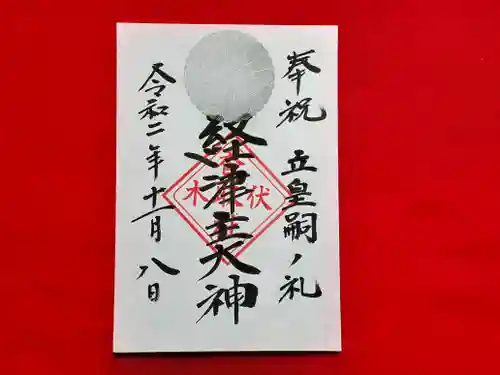 奉祝 立皇嗣ノ礼
経津主大神
令和二年十一月八日
木 伏